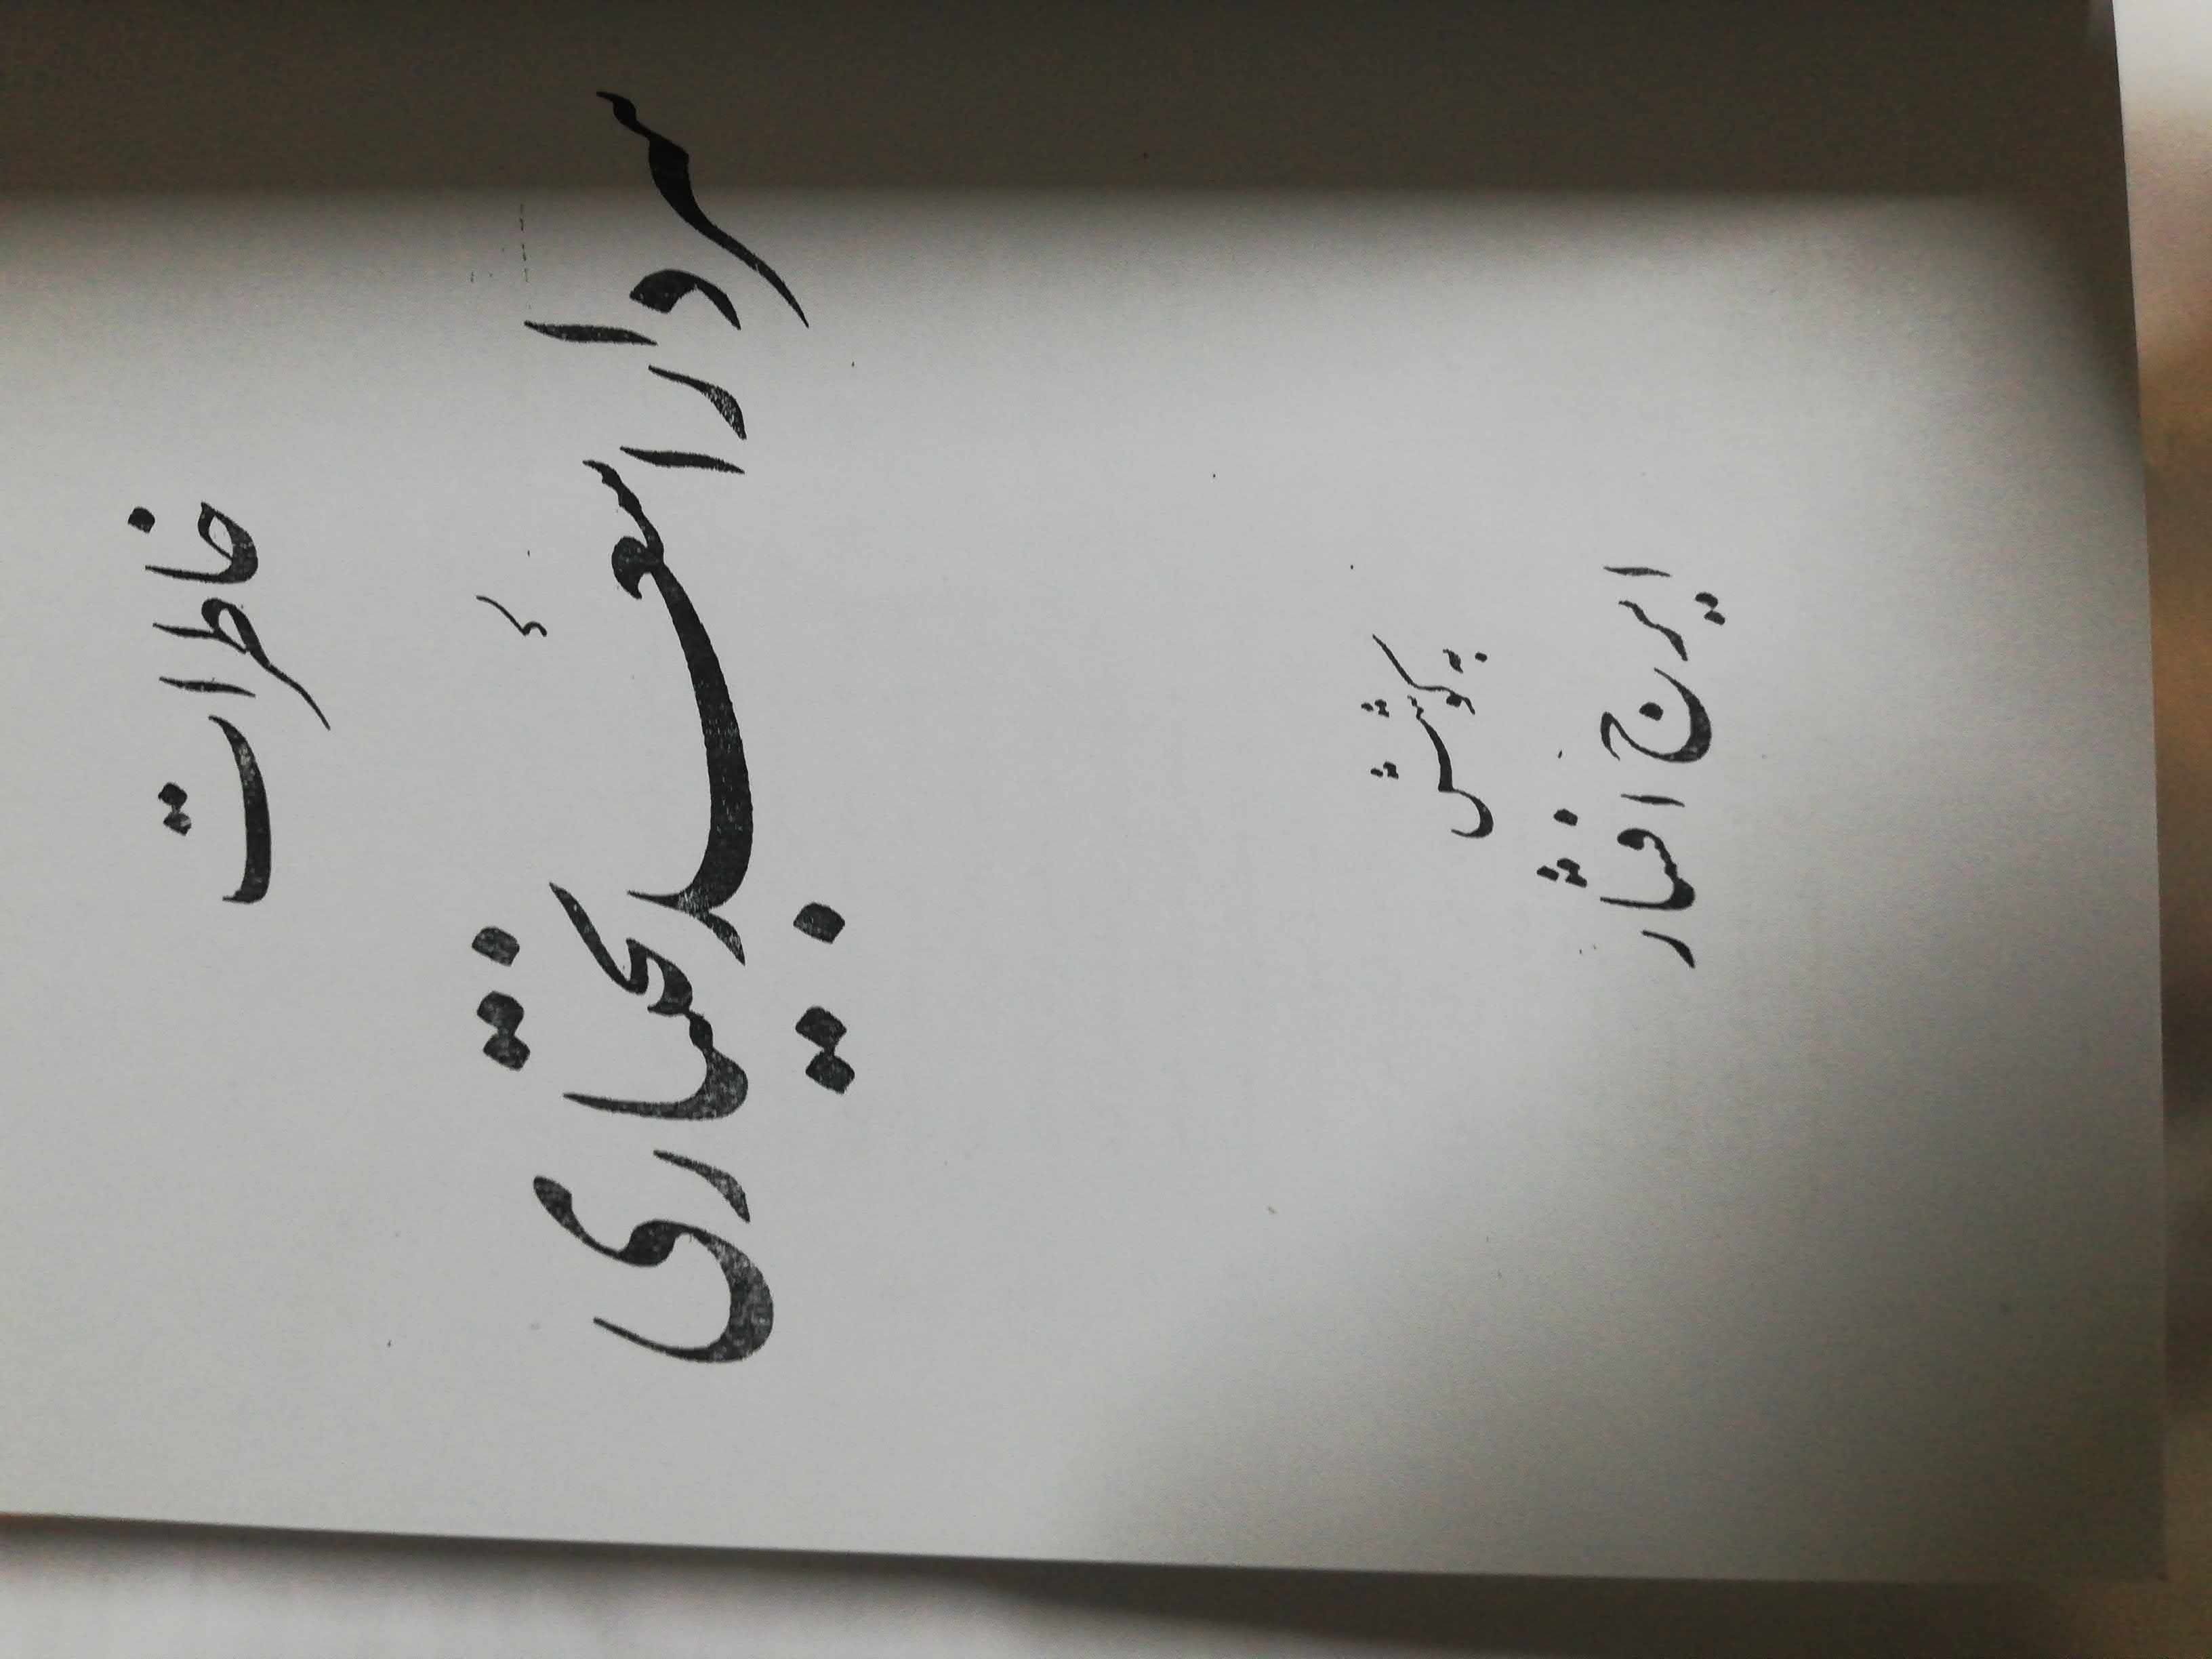 خاطرات
سردار اسعد بختیاری
به کوشش
ایرج افشار